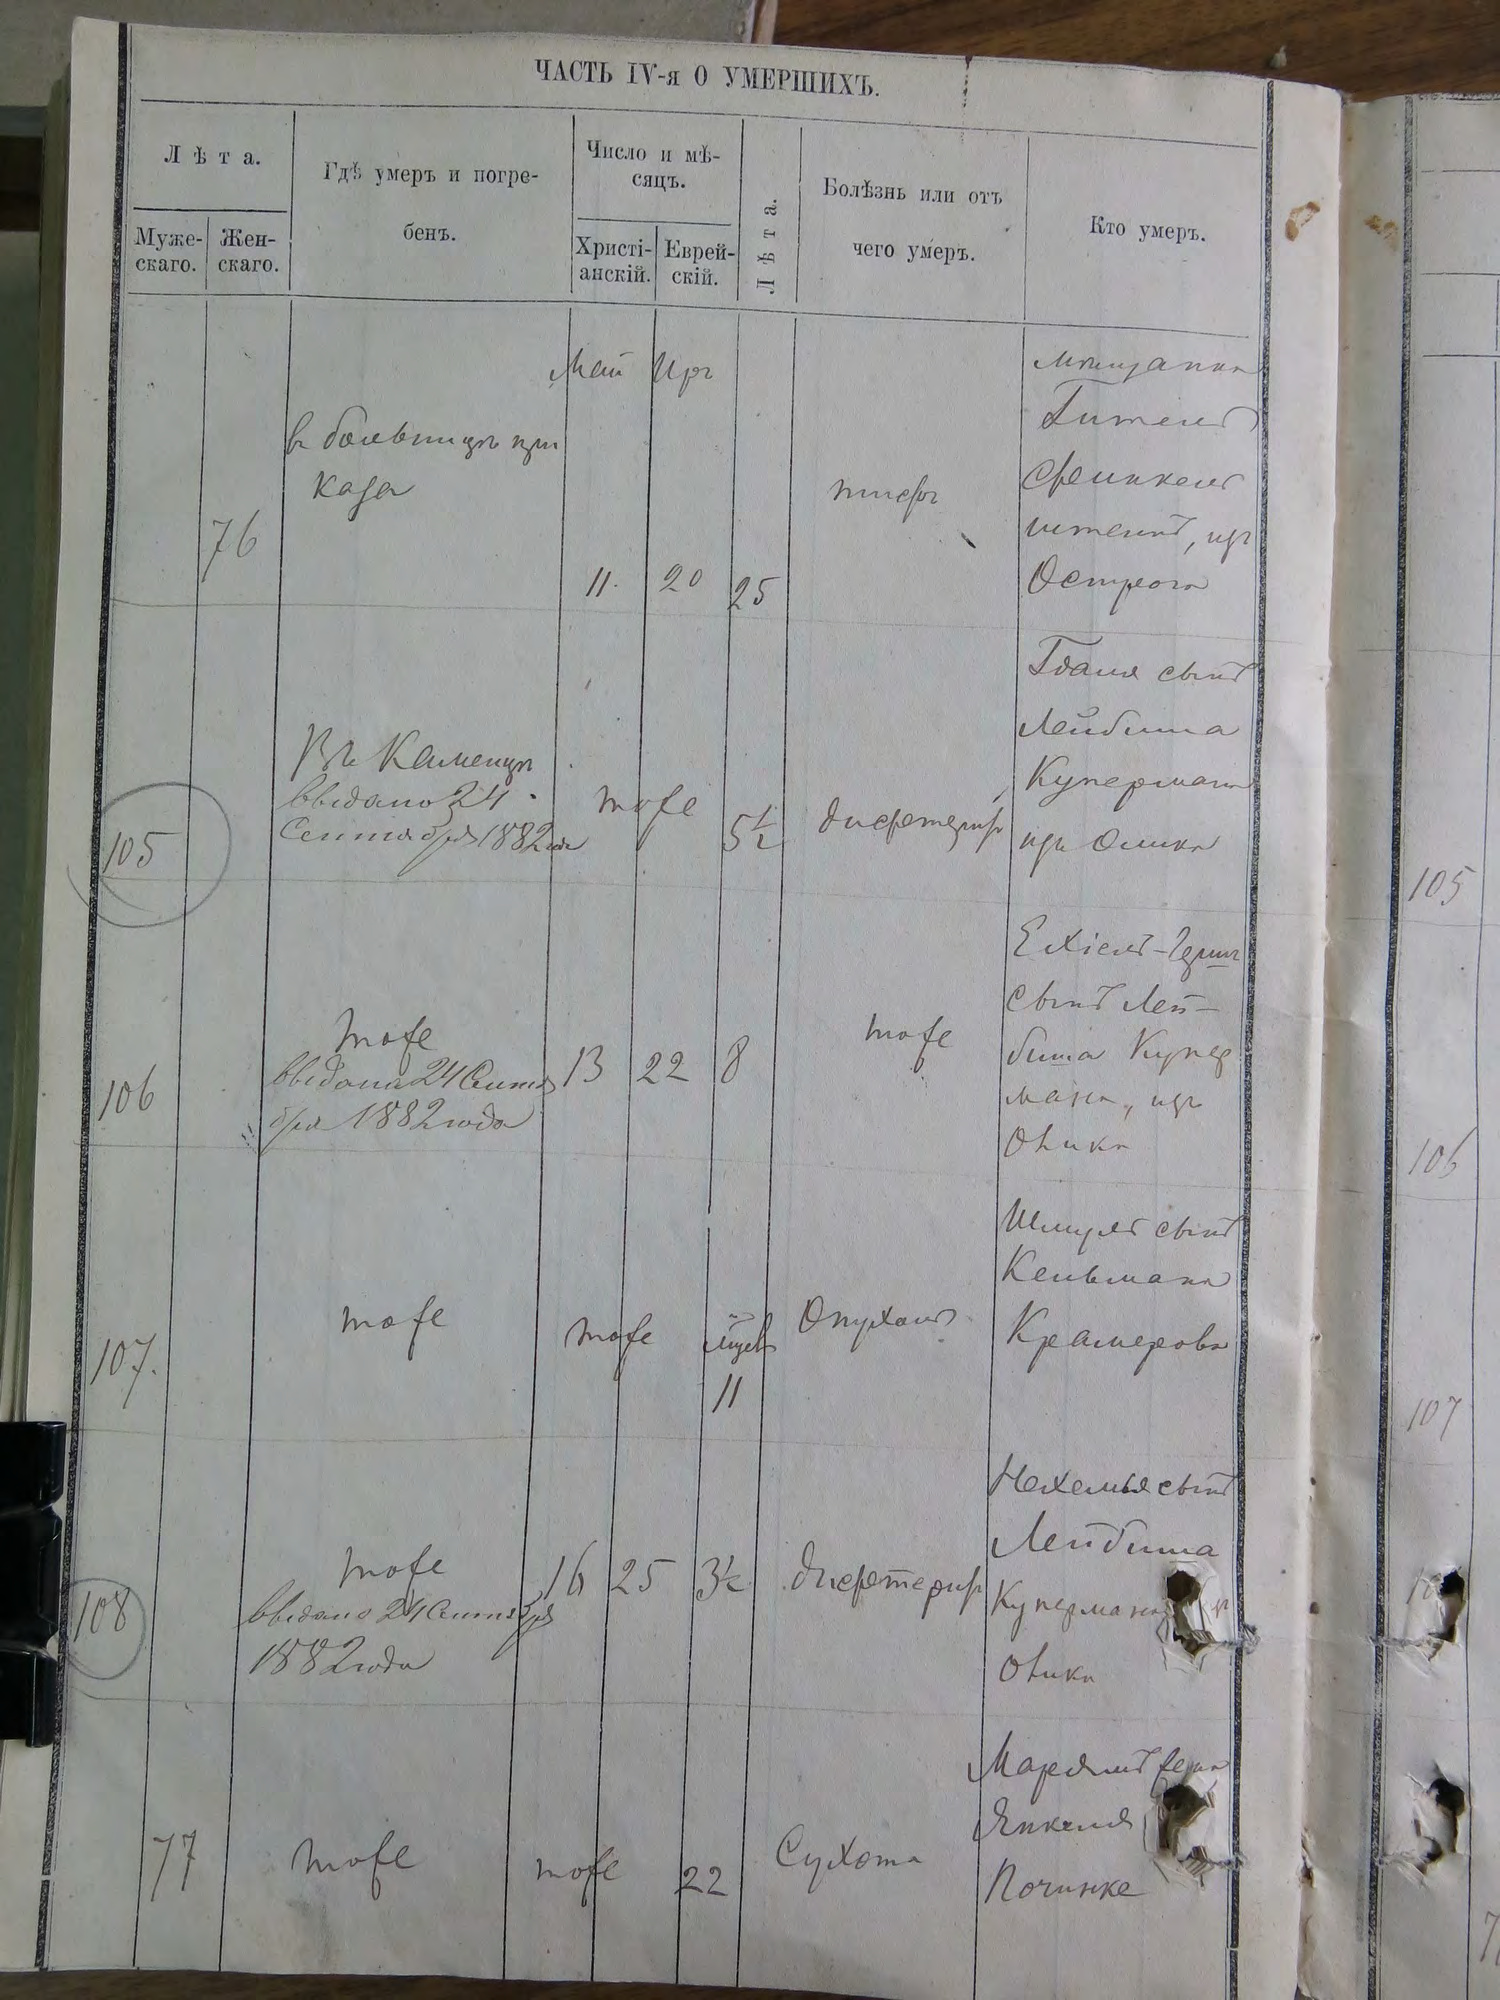 ЧАСТЬ IV-я О УМЕРШИХЪ.
Лѣта.
Муже-
скаго.
Жен-
скаго.
Гдѣ умеръ и погре-
бенъ.
Число и мѣ-
сяцъ.
Христі-
анскій.
Еврей-
скій.
Лѣта.
Болѣзнь или отъ
чего умеръ.
Кто умеръ.
76
в больницѣ при
каза
Май
11.
20
25
тифъ
мѣщанка
Гитель
штейнъ, изъ
Острога
105
Въ Каменцѣ
выдано 24
Сентября 1882 года
тоже
5 1/2
дифтеритъ
Гдаля сынъ
Лейбиша
Купермана
изъ Олыки
105
106
тоже
выдана 24 Сентя
бря 1882 года
13
22
8
тоже
Ехіель-Герш
сынъ Лей-
биша Купер
мана, изъ
Олыки
106
107.
тоже
тоже
11
Опухоль
Шмуль сынъ
Кельмана
Крамерова
107
108
тоже
выдано 24 Сентября
1882 года
16
25
3 1/2
дифтеритъ
Нехемья сынъ
Лейбиша
Купермана
Олыки
77
тоже
тоже
22
Сухота
Марьямъ жена
Янкеля
Починке